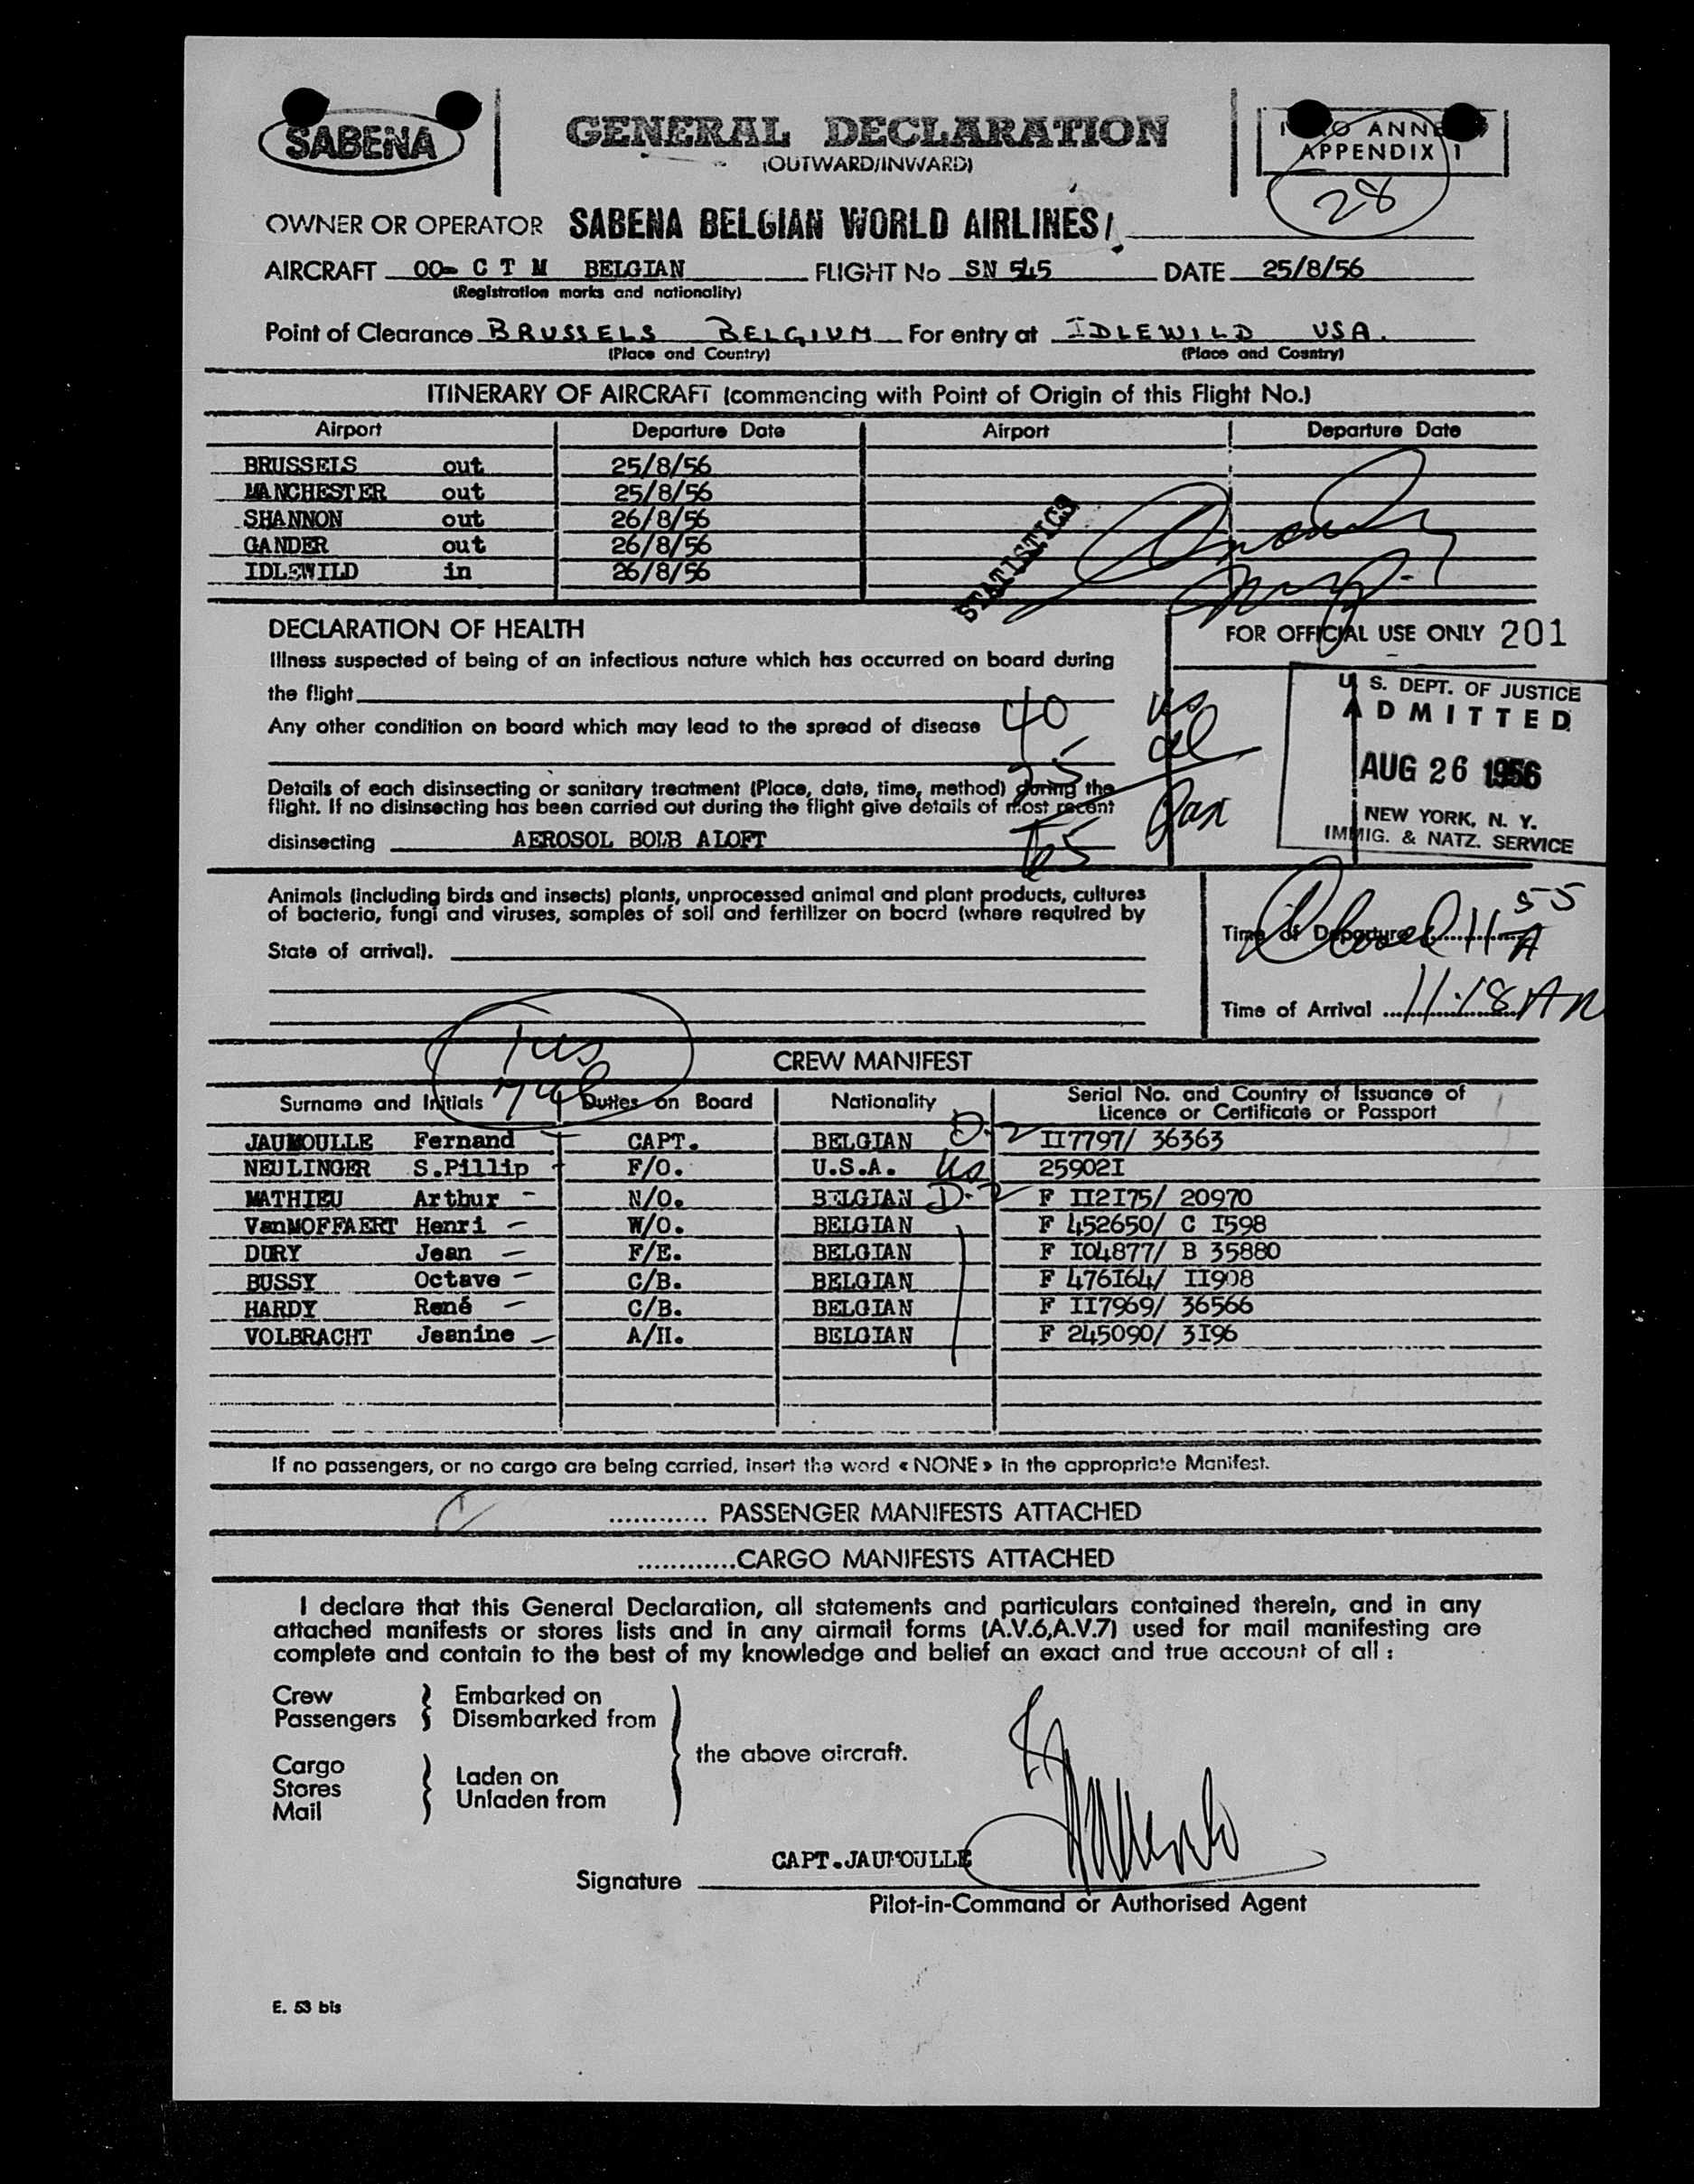 SABENA
GENERAL DECLARATION
(OUTWARD/INWARD)
APPENDIX 1
28
OWNER OR OPERATOR SABENA BELGIAN WORLD AIRLINES/
AIRCRAFT OO- C T M BELGIAN FLIGHT No SN 545 DATE 25/8/56
(Registration marks and nationality)
Point of Clearance BRUSSELS BELGIUM For entry at IDLEWILD USA.
(Place and Country) (Place and Country)
ITINERARY OF AIRCRAFT (commencing with Point of Origin of this Flight No.)
Airport Departure Date Airport Departure Date
BRUSSELS out 25/8/56
MANCHESTER out 25/8/56
SHANNON out 26/8/56
GANDER out 26/8/56
IDLEWILD in 26/8/56
STATISTICS
DECLARATION OF HEALTH
FOR OFFICIAL USE ONLY 201
Illness suspected of being of an infectious nature which has occurred on board during
the flight
Any other condition on board which may lead to the spread of disease
40 us
25 al
65 Pax
U. S. DEPT. OF JUSTICE
ADMITTED
AUG 26 1956
NEW YORK, N. Y.
IMMIG. & NATZ. SERVICE
Details of each disinsecting or sanitary treatment (Place, date, time, method) during the
flight. If no disinsecting has been carried out during the flight give details of most recent
disinsecting AEROSOL BOMB ALOFT
Animals (including birds and insects) plants, unprocessed animal and plant products, cultures
of bacteria, fungi and viruses, samples of soil and fertilizer on board (where required by
State of arrival).
Time of Departure Closed 11 55 A
Time of Arrival 11:18 AM
1 us
7 al
CREW MANIFEST
Surname and Initials Duties on Board Nationality Serial No. and Country of Issuance of
Licence or Certificate or Passport
JAUMOULLE Fernand CAPT. BELGIAN D-2 II7797/ 36363
NEULINGER S.Pillip F/O. U.S.A. us 25902I
MATHIEU Arthur - N/O. BELGIAN D-2 F II2I75/ 20970
VanMOFFAERT Henri - W/O. BELGIAN F 452650/ C I598
DURY Jean - F/E. BELGIAN F I04877/ B 35880
BUSSY Octave - C/B. BELGIAN F 476I64/ II908
HARDY René - C/B. BELGIAN F II7969/ 36566
VOLBRACHT Jeanine - A/H. BELGIAN F 245090/ 3I96
If no passengers, or no cargo are being carried, insert the word « NONE » in the appropriate Manifest.
............ PASSENGER MANIFESTS ATTACHED
............CARGO MANIFESTS ATTACHED
I declare that this General Declaration, all statements and particulars contained therein, and in any
attached manifests or stores lists and in any airmail forms (A.V.6,A.V.7) used for mail manifesting are
complete and contain to the best of my knowledge and belief an exact and true account of all :
Crew Embarked on
Passengers Disembarked from
the above aircraft.
Cargo
Stores Laden on
Mail Unladen from
CAPT.JAUMOULLE
Signature
Pilot-in-Command or Authorised Agent
E. 53 bis